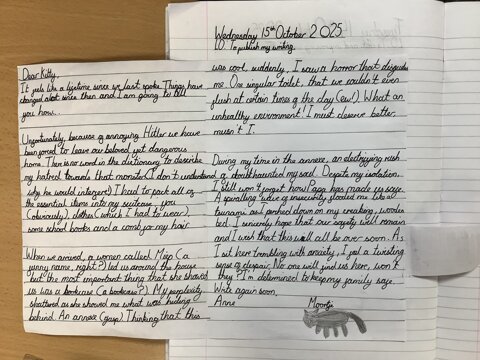 Wednesday 15th October 2025
LO: To publish my writing.
Dear Kitty,
It feels like a lifetime since we last spoke. Things have
changed alot since then and I am going to tell
you how..
Unfortunately, because of annoying Hitler we have
been forced to leave our beloved yet dangerous
home. There is no word in the dictionary to describe
my hatred towards that monster (I don't understand
why he would interfere!) I had to pack all of
the essential items into my suitcase: you
(obviously), clothes (which I had to wear),
some school books and a comb for my hair.
When we arrived, a women called Miep (a
funny name, right?) led us around the house
but the most important thing that she showed
us was a bookcase (a bookcase?). My perplexity
shattered as she showed me what was hiding
behind. An annexe (gasp). Thinking that this
was cool, suddenly, I saw a horror that disgusted
me. One singular toilet, that we couldn't even
flush at certain times of the day (ew!). What an
unhealthy environment! I must deserve better,
mustn't I.
During my time in the annexe, an electrifying rush
of doubt haunted my soul. Despite my isolation,
I still won't forget how Papa has made us safe.
A spiralling wave of insecurity flooded me like a
tsunami as I perched down on my creaking, wooden
bed. I sincerely hope that our safety will remain
and I wish that this will all be over soon. As
I sit here trembling with anxiety, I feel a twisting
sense of despair. No one will find us here, won't
they? I'm determined to keep my family safe.
Write again soon,
Anne
Moortje